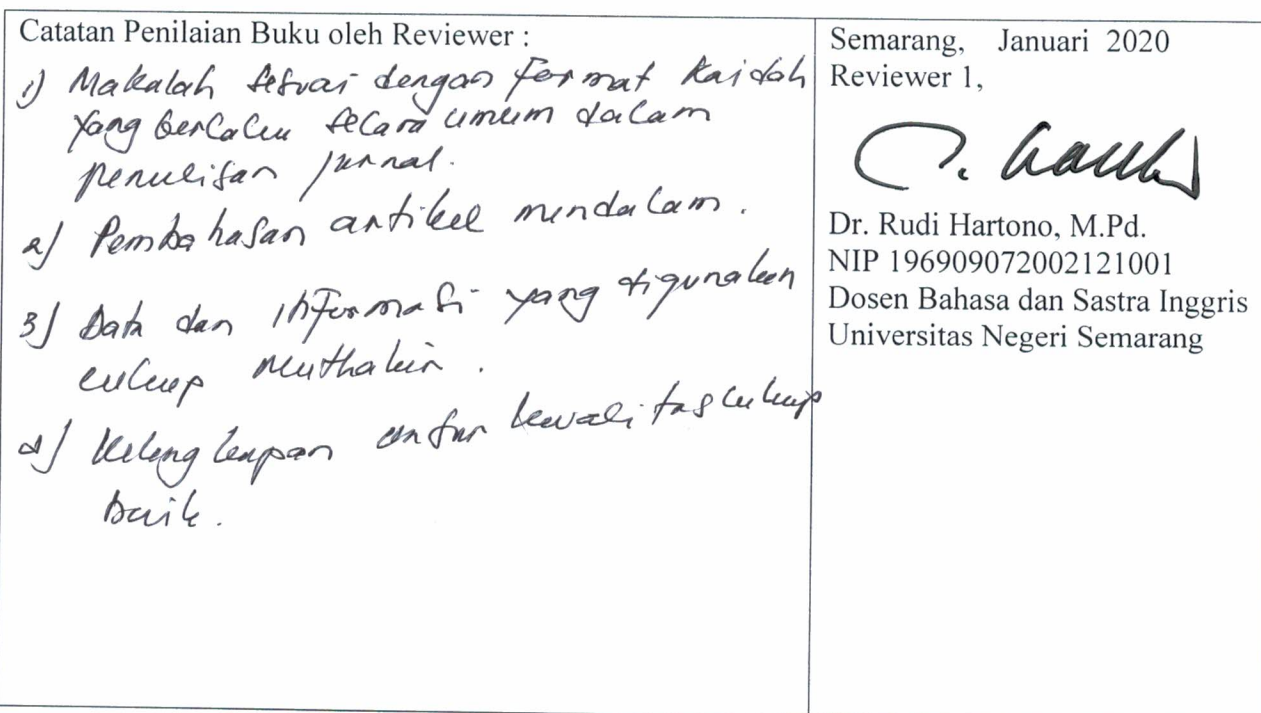 Catatan Penilaian Buku oleh Reviewer :
1) Makalah sesuai dengan format kaidah
yang berlaku secara umum dalam
penulisan jurnal.
2) Pembahasan artikel mendalam.
3) Data dan informasi yang digunakan
cukup muthakir.
4) Kelengkapan unsur kwalitas cukup
baik.
Semarang, Januari 2020
Reviewer 1,
Dr. Rudi Hartono, M.Pd.
NIP 196909072002121001
Dosen Bahasa dan Sastra Inggris
Universitas Negeri Semarang